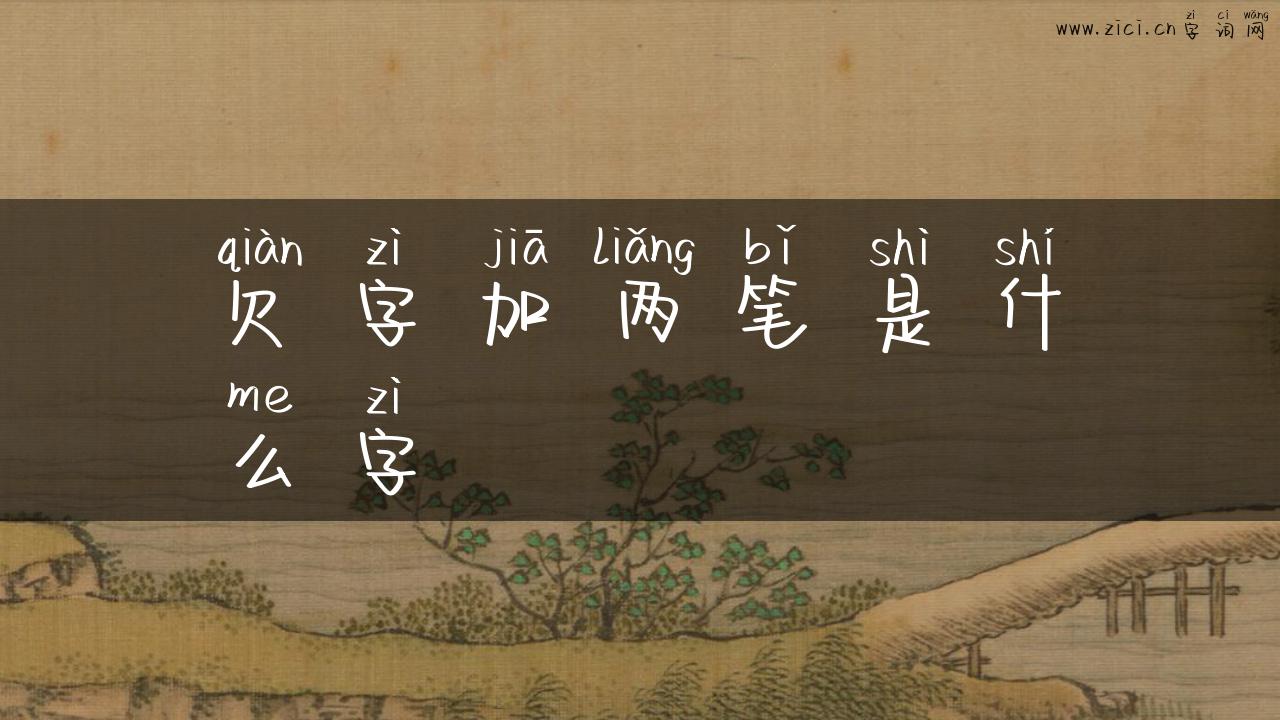 zì cí wǎng
www.zici.cn 字 词 网
qiàn zì jiā liǎng bǐ shì shí
欠 字 加 两 笔 是 什
me zì
么 字